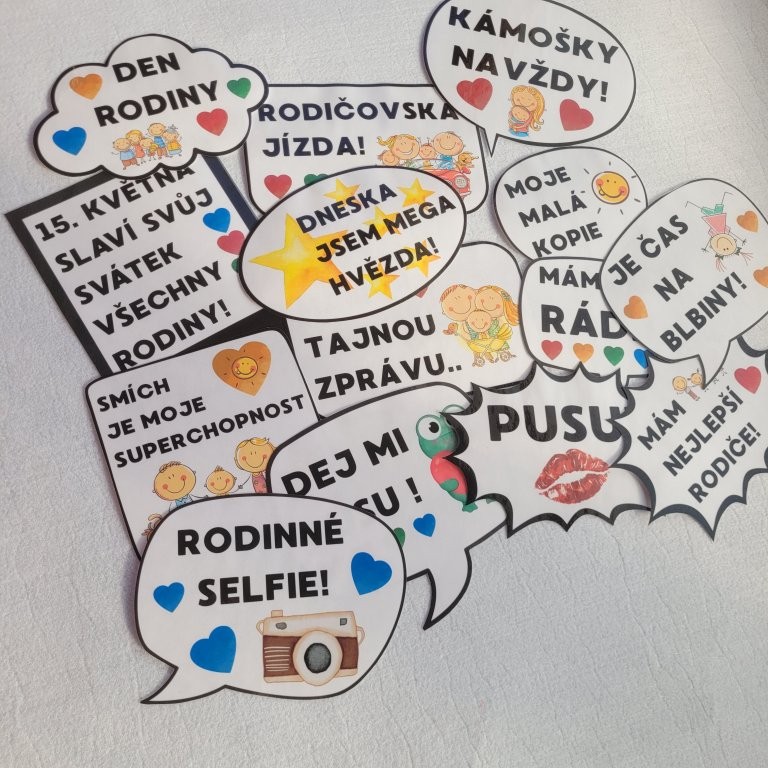 DEN
RODINY
KÁMOŠKY
NAVŽDY!
RODIČOVSKÁ
JÍZDA!
15. KVĚTNA
SLAVÍ SVŮJ
SVÁTEK
VŠECHNY
RODINY!
DNESKA
JSEM MEGA
HVĚZDA!
MOJE
MALÁ
KOPIE
JE ČAS
NA
BLBINY!
MÁM
RÁD
TAJNOU
ZPRÁVU..
SMÍCH
JE MOJE
SUPERCHOPNOST
DEJ MI
SU!
PUSU
MÁM
NEJLEPŠÍ
RODIČE!
RODINNÉ
SELFIE!